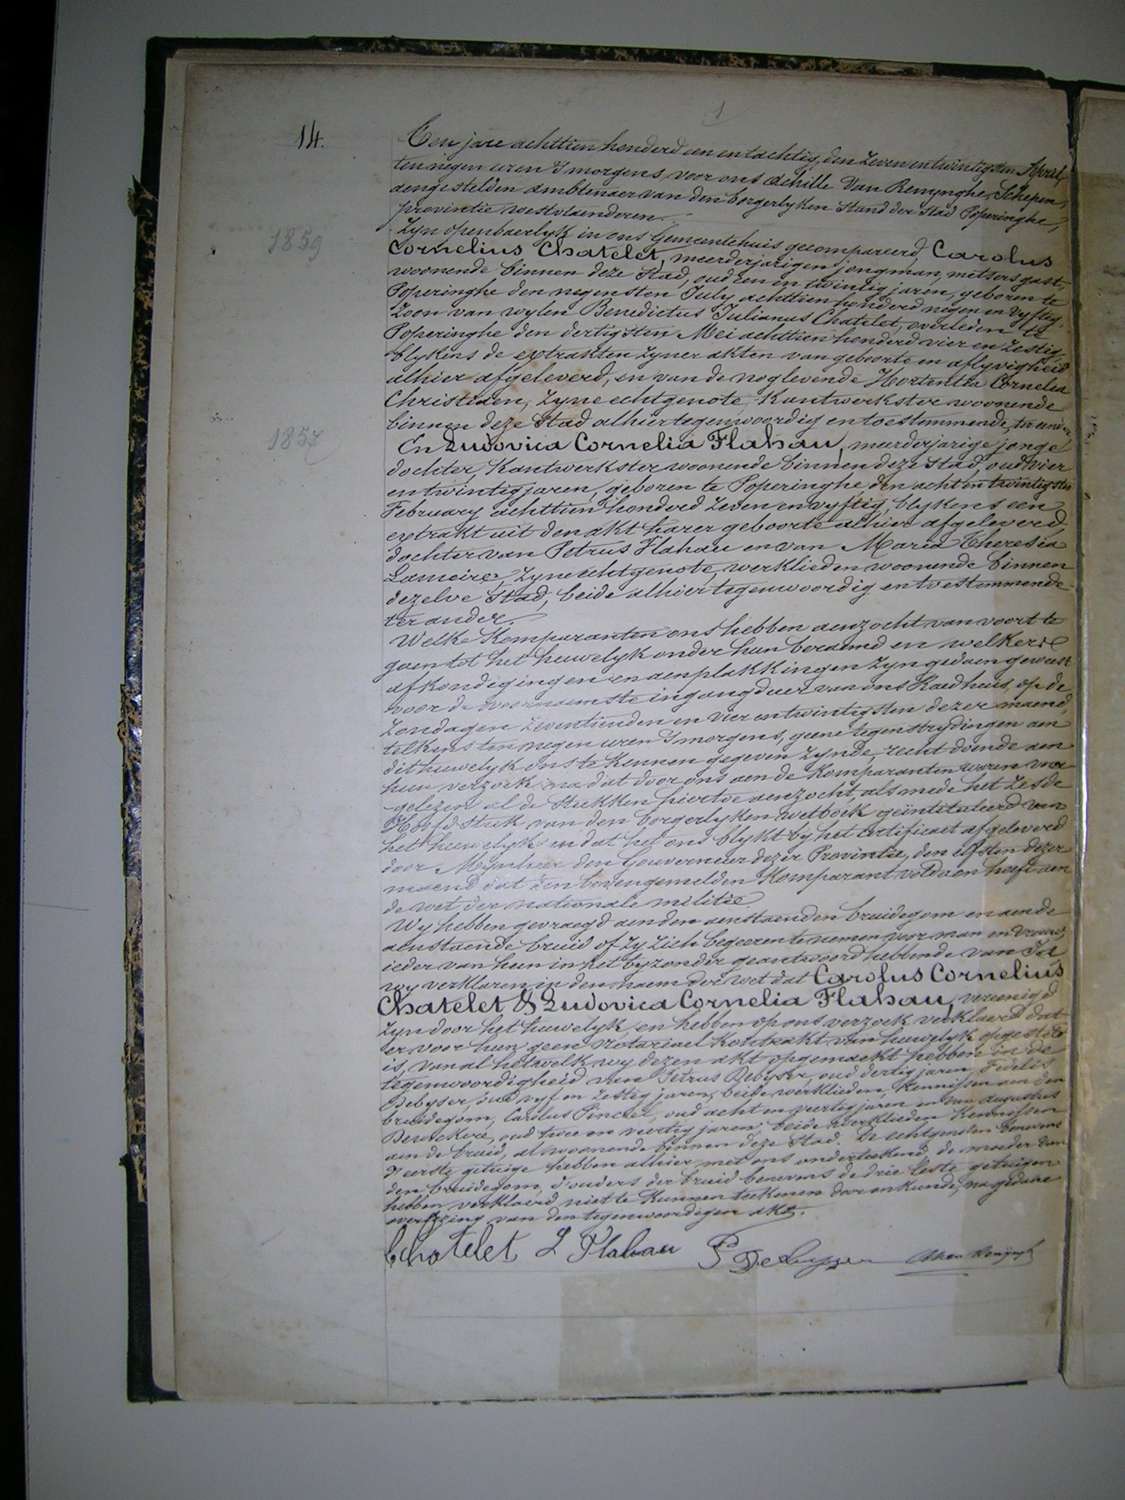 1
14.
Ten jare achttien honderd een en tachtig, den Zeven en twintigsten April,
ten negen uren 's morgens voor ons Achille Van Renynghe, Schepen,
aengestelden Ambtenaer van den borgerlyken Stand der Stad Poperinghe,
provintie westvlaenderen.
Zyn openbaerlyk in ons Gemeentehuis gecompareerd, Carolus
1859
Cornelius Chatelet, meerderjarigen jongman, metsersgast,
woonende binnen deze Stad, oud een en twintig jaren, geboren te
Poperinghe den negensten July achttien honderd negen en vyftig
Zoon van wylen Benedictus Julianus Chatelet, overleden te
Poperinghe den dertigsten Mei achttien honderd vier en Zestig
blykens de extrakten Zyner akten van geboorte en aflyvigheid
alhier afgeleverd, en van de noglevende Hortentia Cornelia
Christiaen, Zyne echtgenote, Kantwerkster woonende
binnen deze Stad alhier tegenwoordig en toestemmende,
1857
En Ludovica Cornelia Flahau, meerderjarige jonge
dochter, Kantwerkster woonende binnen deze Stad, oud vier
en twintig jaren, geboren te Poperinghe den acht en twintigsten
February achttien honderd Zeven en vyftig, blykens een
extrakt uit den akt harer geboorte alhier afgeleverd,
dochter van Petrus Flahau en van Maria Theresia
Lameire, Zyne echtgenote, werklieden woonende binnen
dezelve Stad, beide alhier tegenwoordig en toestemmende
ter ander.
Welke Komparanten ons hebben aenzocht van voort te
gaen tot het huwelyk onder hun beraemd en welkers
afkondigingen en aenplakkingen Zyn gedaen geweest
voor de voornaemste ingangdeur van ons Raedhuis, op de
Zondagen Zeventienden en vier en twintigsten dezer maend,
telkens ten negen uren 's morgens, geene tegenstrydingen aen
dit huwelyk ons te Kennen gegeven Zynde, recht doende aen
hun verzoek, na dat door ons aen de Komparanten waren voor
gelezen al de Stukken hiertoe aenzocht als mede het Zesde
Hoofdstuk van den borgerlyken wetboek geïntituleerd van
het huwelyk en dat het ons blykt by het certificaet afgeleverd
door Mynheer den Gouverneur dezer Provintie, den elfsten dezer
maend dat den bovengemelden Komparant voldaen heeft aen
de wet der nationale militie
Wy hebben gevraegd aen den aenstaenden bruidegom en aen de
aenstaende bruid of Zy Zich begeeren te nemen voor man en vrouw,
ieder van hun in het byzonder geantwoord hebbende van Ja!
wy verklaren in den naem der wet dat Carolus Cornelius
Chatelet & Ludovica Cornelia Flahau, vereenigd
Zyn door het huwelyk, en hebben op ons verzoek verklaerd dat
er voor hun geene notariael Kontrakt van huwelyk opgesteld
is, van al hetwelk wy dezen akt opgemaekt hebben in de
tegenwoordigheid van Petrus Debyser, oud dertig jaren, Fidelis
Debyser, oud vyf en Zestig jaren, beide werklieden, Kennissen aen den
bruidegom, Carolus Pinceel, oud acht en veertig jaren en van Augustus
oud twee en veertig jaren, beide werklieden Kennissen
aen de bruid, al woonende binnen deze Stad. De echtgenoten benevens
d'eerste getuige hebben alhier met ons onderteekend de moeder van
den bruidegom, d'ouders der bruid benevens de drie leste getuigen
hebben verklaerd niet te Kunnen teekenen door onkunde, na gedane
overlezing van den tegenwoordigen akt.
Chatelet L Flahau Pd Debyser